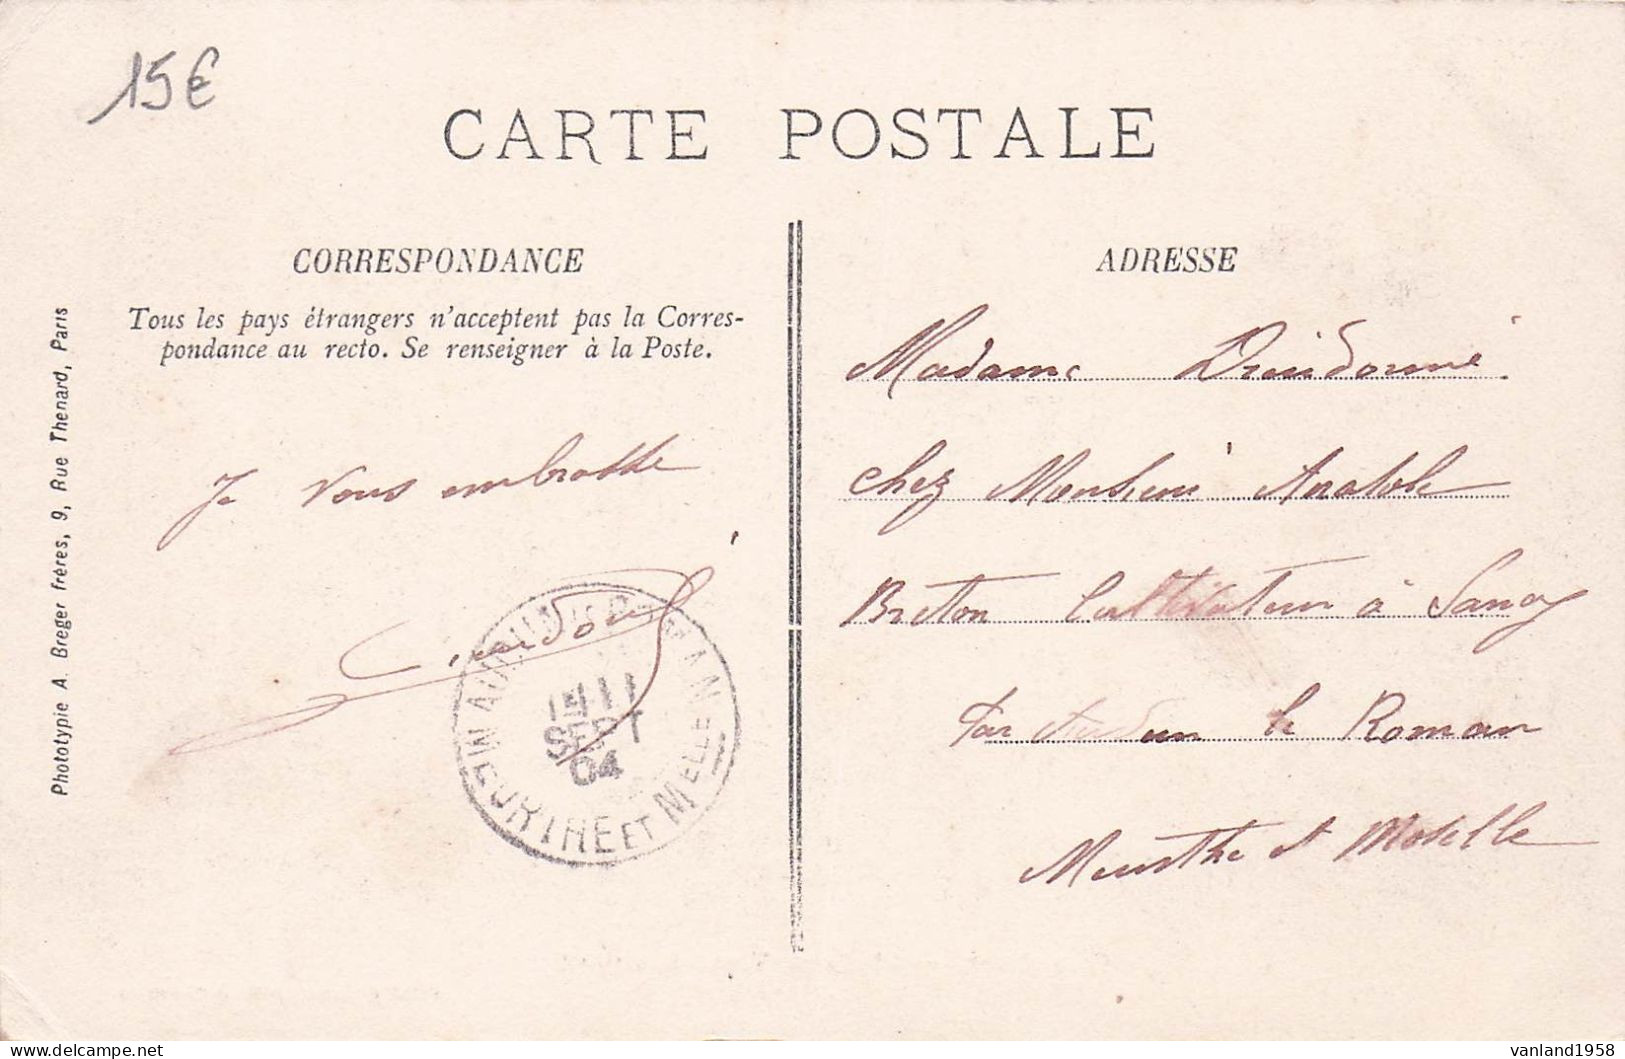 15€
CARTE POSTALE
CORRESPONDANCE
Tous les pays étrangers n'acceptent pas la Corres-
pondance au recto. Se renseigner à la Poste.
Je vous embrasse
ADRESSE
Madame Dieudonné
chez Monsieur Anatole
Breton Cultivateur à Sancy
Par Audun le Roman
Meurthe et Moselle
AUDUN-LE-ROMAN
11
SEPT
04
MEURTHE ET MELLE
Phototypie A. Breger frères, 9, Rue Thenard, Paris
vanland1958